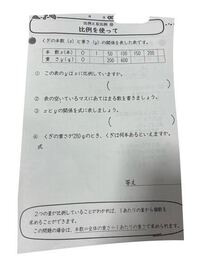 比例を使って
くぎの本数(x)と重さ(y)の関係を表した表です。
くぎの本数x(本) 0 1 50 100 150 200
重さy(g) 200 600
① この表のyはxに比例していますか。
( )
② 表の空いているマスにあてはまる数を書きましょう。
③ xとyの関係を式に表しましょう。
④ くぎの重さが280gのとき、くぎは何本あるといえますか。
式
答え
2つの量が比例していることがわかれば、1あたりの量から個数を
求めることができます。
この問題の場合は、本数が全体の重さ÷1あたりの重さで求められます。